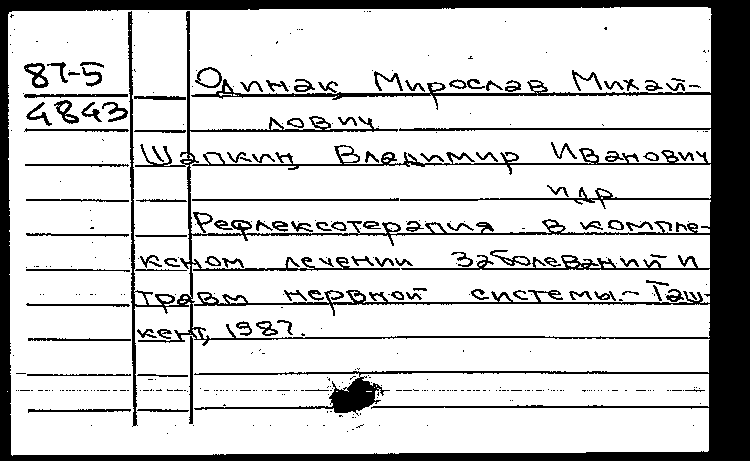 87-5
4843
Одинак, Мирослав Михай-
лович
Шапкин, Владимир Иванович
и др
Рефлексотерапия в компле-
ксном лечении заболеваний и
травм нервной системы.- Таш-
кент, 1987.